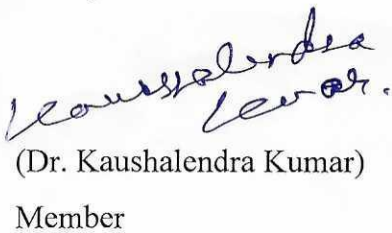 Kaushalendra
Kumar.
(Dr. Kaushalendra Kumar)
Member